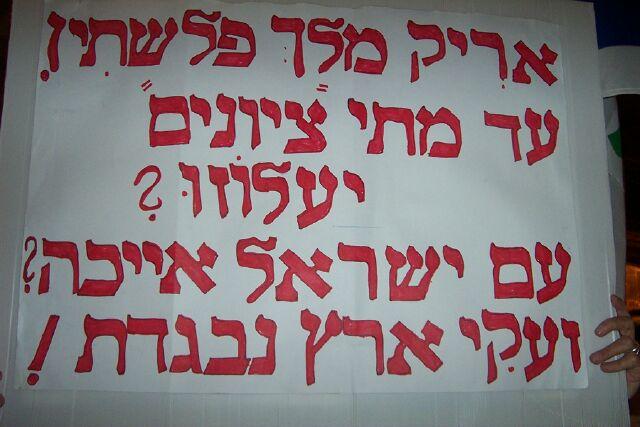 אריק מלך פלשתין!
עד מתי "ציונים"
יעלוזו ?
עם ישראל אייכה?
זעקי ארץ נבגדת !